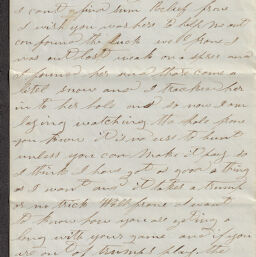 I cant give him Relief from
I wish you was here to help me out
confound the luck well from I
was out last weak on a spree and
I found her and there come a
litel snow and I tracked her
in to her hole and so now I am
laying watching the hole from
you know it is no use to hunt
unless you can make it pay so
I think I have got as good a thing
as I want and it takes a trump
or no trick Well I want
to know how you are getting a
long with your game and if you
are out of trumps play the